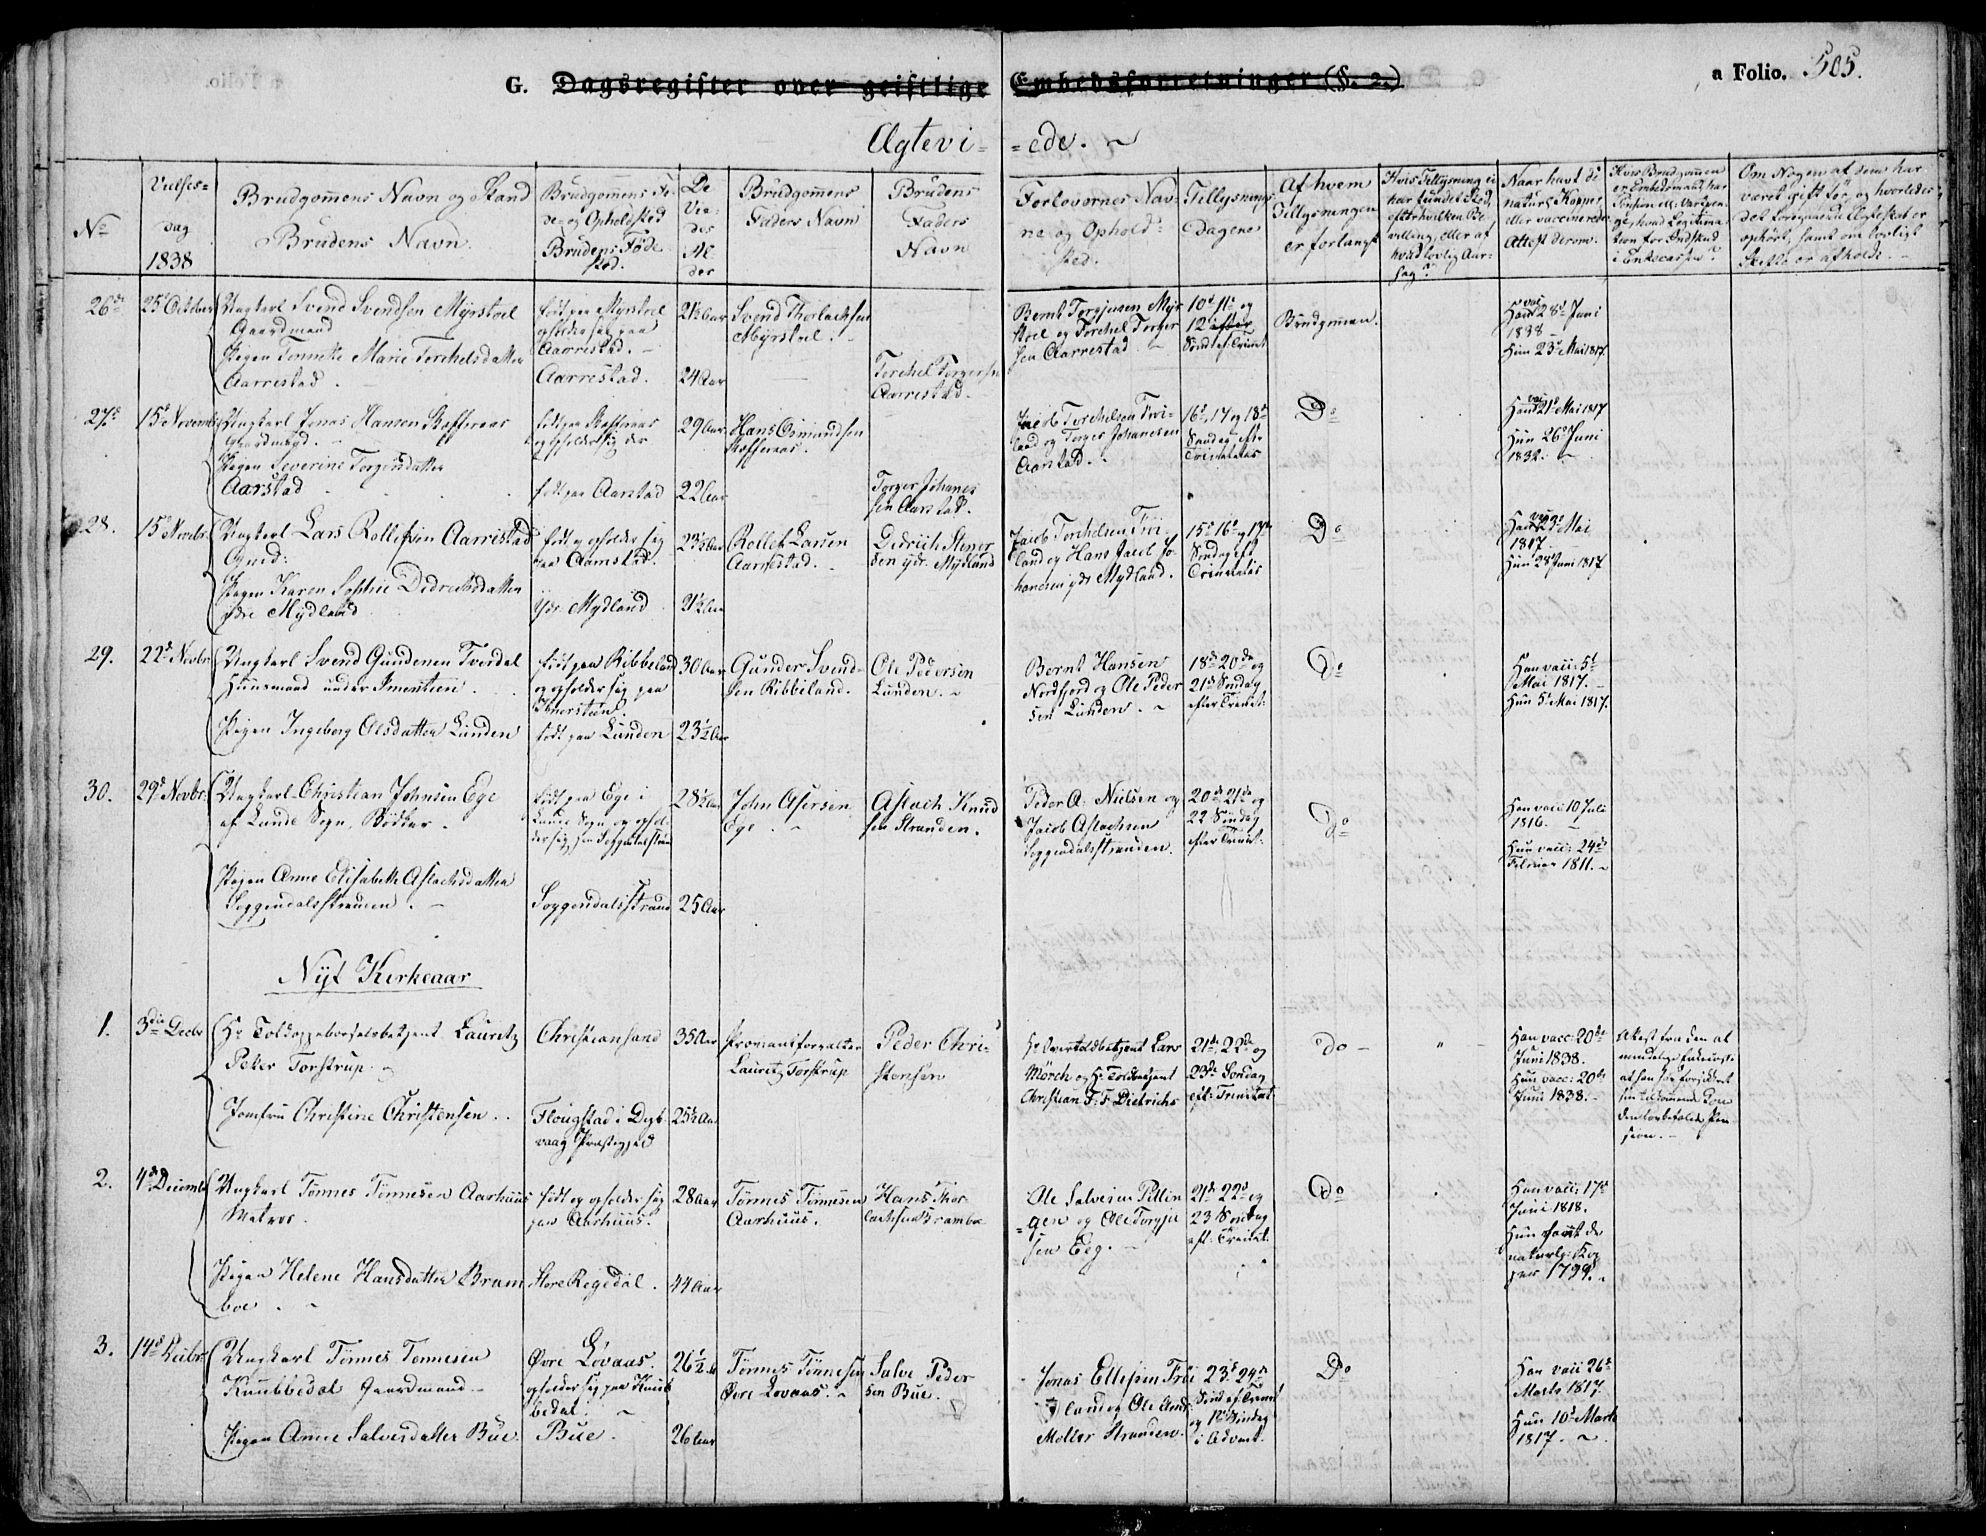 G. Dagsregister over geistlige Embedsforretninger (§. 2.)
a Folio. 505.
Ægtevi- -ede. ~
No
Vielses-
dag
1838
Brudgommens Navn og Stand
Brudens Navn.
Brudgommens Fø-
de- og Opholdsted
Brudens Føde
sted.
De
Vie-
des
Al-
der
Brudgommens
Faders Navn
Brudens
Faders
Navn
Forlovernes Nav-
ne og Ophold-
sted.
Tillysnings
Dagene
Af hvem
Tillysningen
er forlangt
Hvis Tillysning ei
har fundet Sted,
efter hvilken Be-
villing, eller af
hvad lovlig Aar-
sag?
Naar havt de
naturl. Kopper
eller vaccinerede
Attest derom.
Hvis Brudgommen
er Embedsmand, har
Pension
i Enkecassen?
Om Nogen af dem har
været gift før, og hvorledes
det Ægteskab er
ophørt, samt om lovligt
Skifte er afholdt.
26de
25 October
Ungkarl Svend Svendsen Myrstoel
Gaardmand
Pigen Tonnette Marie Torchelsdatter
Aarrestad.
født paa Myrstoel
opholder sig paa
Aarrestad.
Aarrestad.
24 Aar
Svend Thorlachsen
Myrstoel.
Torchel Torgersen
Aarrestad.
Bernt Torgersen Myr
stoel og Torchel Torger
sen Aarrestad
10d 11t og
12 efter
Sønd. ef. Trinit
Brudgommen.
Han vac 28d Juni
1838
Hun 23d Mai 1817.
27de
15d Novemb
Ungkarl Jonas Hansen
Pigen Severine Torgersdatter
Aarstad
og opholder sig der
født paa Aarstad
29 Aar
22 Aar
Hans Osmundsen
Torger Johanes
sen Aarstad.
Jacob Torchelsen Fri-
land og Torger Johanesen
Aarstad.
16d, 17 og 18d
Søndag efter
Trinitatis
Do
Han 21d Mai 1817
Hun 26d Juni
1832.
28.
15d Novbr.
Ungkarl Lars Rollefsen Aarrestad
Pigen Karen Sophie Didrichsdatter
ydre Mydland
født og opholder sig
paa Aarrestad.
Ydr. Mydland
23½ Aar
21½ Aar
Rollef Larsen
Aarrestad.
Didrich Stener
sen ydr. Mydland
Jacob Torchelsen Fri
land og Hans Jacob Jo-
hannesen ydr Mydland.
15d 16d og 17de
Søndag eft
Trinitatis
Do
Han 23d Mai
1817
Hun 28d Juni 1817
29.
22d Novbr
Ungkarl Svend Gundersen Tverdal
Huusmand under Imenstien.
Pigen Ingeborg Olsdatter Lunden
født paa Ribbeland
og opholder sig paa
født paa Lunden
30 Aar
23½ Aar
Gunder Svend-
sen Ribbeland.
Ole Pedersen
Lunden.
Bernt Hansen
Nordfjord og Ole Peder
sen Lunden.
18de 20de og
21de Søndag
efter Trinit:
Do
Han vacc: 5t
Mai 1817.
Hun 5t Mai 1817.
30.
29d Novbr.
Ungkarl Christian Johnsen Ege
af Lunde Sogn, Bødker.
Pigen Anne Elisabeth Aslachsdatter
Soggendalsstranden.
født paa Ege i
Lunde Sogn og ophol-
der sig paa Soggendalsstrand
Soggendalsstrand
28½ Aar
25 Aar
John Asersen
Ege.
Aslach Knud
sen Stranden.
Peder A: Nielsen og
Jacob Aslachsen
Soggendalsstranden.
20de 21de og
22 Søndag
efter Trinit:
Do
Han vacc: 10 Juli
1816.
Hun vacc: 24de
Februar 1811.
Nyt Kirkeaar
1.
3die Decbr
Hr Toldoppebørselsbetjent Lauritz
Peter Torstrup.
Jomfru Christine Christensen.
Christiansand
Flougstad i Dyb-
vaag Præstegjeld
35 Aar
25½ Aar
Proviantforvalter
Lauritz Torstrup
Peder Chri-
stensen
Hr Overtoldbetjent Lars
Mörch og Hr Toldbetjent
Christian F: F: Dietrichs
21de, 22de og
23de Søndag
eft: Trinitat:
Do
Han vacc: 20de
Juni 1838.
Hun vacc: 20de
Juni 1838.
Attest fra den
at han har forsikkret
sin tilkommende Kone
den lovbefalede Pen
sion.
2.
4d Decemb
Ungkarl Tønnes Tønnesen Aarhuus
Matros.
Pigen Helene Hansdatter Bram
boe.
født og opholder sig
paa Aarhuus.
Store Regedal.
28 Aar
44 Aar
Tønnes Tønnesen
Aarhuus.
Hans Thor
lachsen Bramboe
Ole Salvesen Pettin
-gen og Ole Torgju
sen Eeg.
21de 22d og
23 Søndag
eft: Trinit:
Do
Han vacc: 17d
Juni 1818.
Hun havt de
naturlg: Kop
per 1799.
3.
14d Decbr.
Ungkarl Tønnes Tønnesen
Knubbedal Gaardmand
Pigen Anne Salvesdatter Bue.
Øvre Løvaas.
opholder sig paa Knub
bedal.
Bue.
26½
26 Aar
Tønnes Tønnesen
Øvre Lovaas.
Salve Peder
sen Bue.
Jonas Ellefsen Fri
land og Ole And:
Møller Stranden.
23d 24de
Sønd. ef. Trinit
og 1ste Søndag
i Advent.
Do
Han vacc 26d
Marts 1817.
Hun 10d Marts
1817.